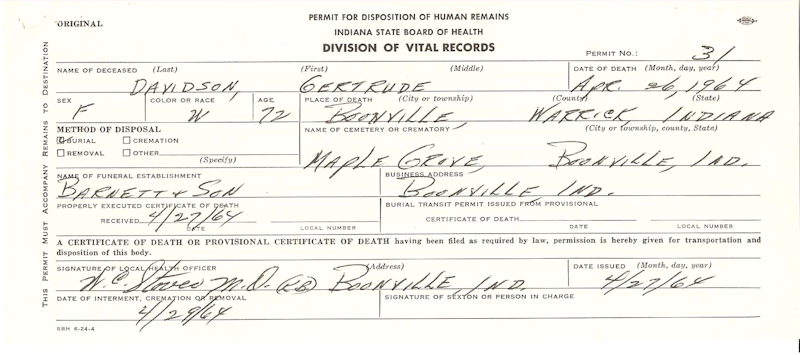 ORIGINAL
PERMIT FOR DISPOSITION OF HUMAN REMAINS
INDIANA STATE BOARD OF HEALTH
DIVISION OF VITAL RECORDS
PERMIT NO.: 31
THIS PERMIT MUST ACCOMPANY REMAINS TO DESTINATION
NAME OF DECEASED (Last) (First) (Middle) DATE OF DEATH (Month, day, year)
DAVIDSON, GERTRUDE APR. 26, 1964
SEX COLOR OR RACE AGE PLACE OF DEATH (City or township) (County) (State)
F W 72 BOONVILLE, WARRICK, INDIANA
METHOD OF DISPOSAL NAME OF CEMETERY OR CREMATORY (City or township, county, State)
BURIAL CREMATION
REMOVAL OTHER
(Specify)
MAPLE GROVE, BOONVILLE, IND.
NAME OF FUNERAL ESTABLISHMENT BUSINESS ADDRESS
BARNETT & SON BOONVILLE, IND.
PROPERLY EXECUTED CERTIFICATE OF DEATH BURIAL TRANSIT PERMIT ISSUED FROM PROVISIONAL
RECEIVED 4/27/64 CERTIFICATE OF DEATH
DATE LOCAL NUMBER DATE LOCAL NUMBER
A CERTIFICATE OF DEATH OR PROVISIONAL CERTIFICATE OF DEATH having been filed as required by law, permission is hereby given for transportation and
disposition of this body.
SIGNATURE OF LOCAL HEALTH OFFICER (Address) DATE ISSUED (Month, day, year)
W.C. M.D. BOONVILLE, IND. 4/27/64
DATE OF INTERMENT, CREMATION OR REMOVAL SIGNATURE OF SEXTON OR PERSON IN CHARGE
4/29/64
SBH 6-24-4